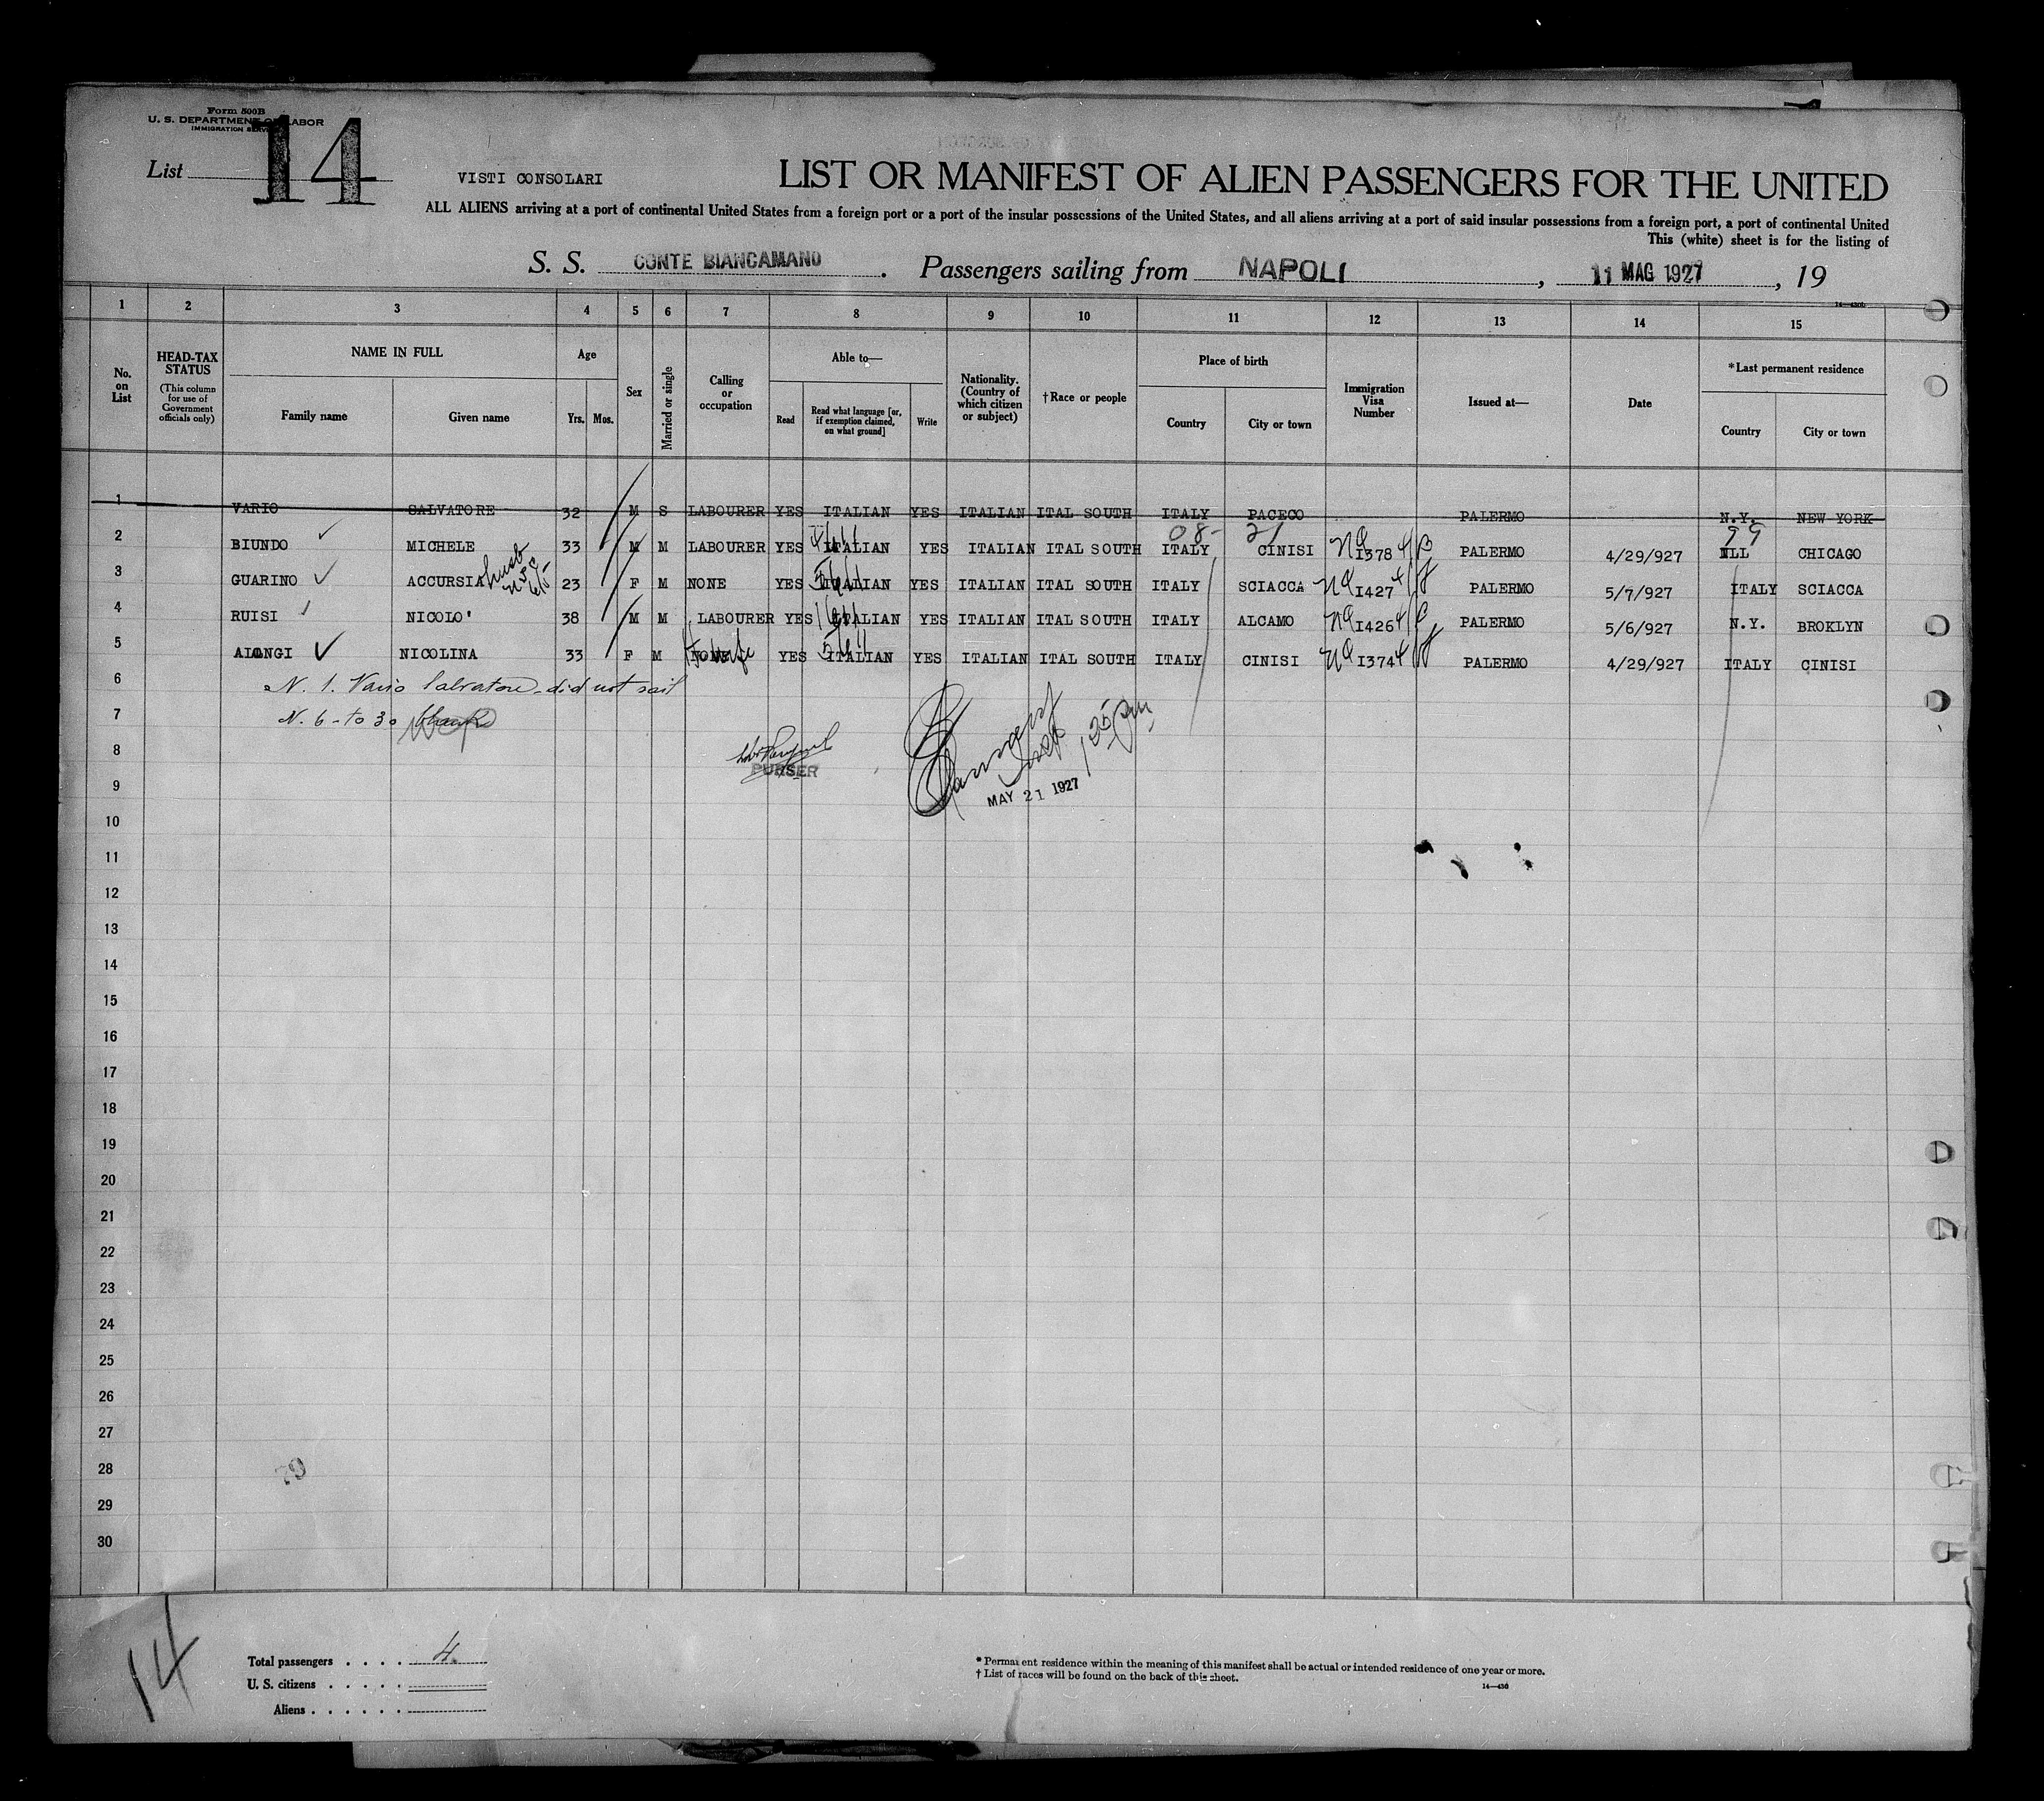 Form 500B
U. S. DEPARTMENT OF LABOR
IMMIGRATION SERVICE
List 14
VISTI CONSOLARI
LIST OR MANIFEST OF ALIEN PASSENGERS FOR THE UNITED
ALL ALIENS arriving at a port of continental United States from a foreign port or a port of the insular possessions of the United States, and all aliens arriving at a port of said insular possessions from a foreign port, a port of continental United
This (white) sheet is for the listing of
S. S. CONTE BIANCAMANO . Passengers sailing from NAPOLI , 11 MAG 1927 , 19
14—430b
1 2 3 4 5 6 7 8 9 10 11 12 13 14 15
No. on List HEAD-TAX STATUS (This column for use of Government officials only) NAME IN FULL Family name Given name Age Yrs. Mos. Sex Married or single Calling or occupation Able to— Read Read what language [or, if exemption claimed, on what ground] Write Nationality. (Country of which citizen or subject) †Race or people Place of birth Country City or town Immigration Visa Number Issued at— Date *Last permanent residence Country City or town
1 VARIO SALVATORE 32 M S LABOURER YES ITALIAN YES ITALIAN ITAL SOUTH ITALY PACECO PALERMO N.Y. NEW YORK
08- 21 99
2 BIUNDO MICHELE 33 M M LABOURER YES ITALIAN YES ITALIAN ITAL SOUTH ITALY CINISI NQ I378 PALERMO 4/29/927 ILL CHICAGO
3 GUARINO ACCURSIA husb 23 F M NONE YES ITALIAN YES ITALIAN ITAL SOUTH ITALY SCIACCA NQ I427 PALERMO 5/7/927 ITALY SCIACCA
4 RUISI NICOLO' 38 M M LABOURER YES ITALIAN YES ITALIAN ITAL SOUTH ITALY ALCAMO NQ I426 PALERMO 5/6/927 N.Y. BROKLYN
5 NICOLINA 33 F M YES ITALIAN YES ITALIAN ITAL SOUTH ITALY CINISI NQ I374 PALERMO 4/29/927 ITALY CINISI
6 N. 1. Vario Salvatore - did not sail
7 N. 6 - to 30 blank
8 PURSER
9 MAY 21 1927
10
11
12
13
14
15
16
17
18
19
20
21
22
23
24
25
26
27
28
29
30
14
Total passengers . . . . 4.
U. S. citizens . . . . .
Aliens . . . . . .
* Permanent residence within the meaning of this manifest shall be actual or intended residence of one year or more.
† List of races will be found on the back of this sheet.
14—430